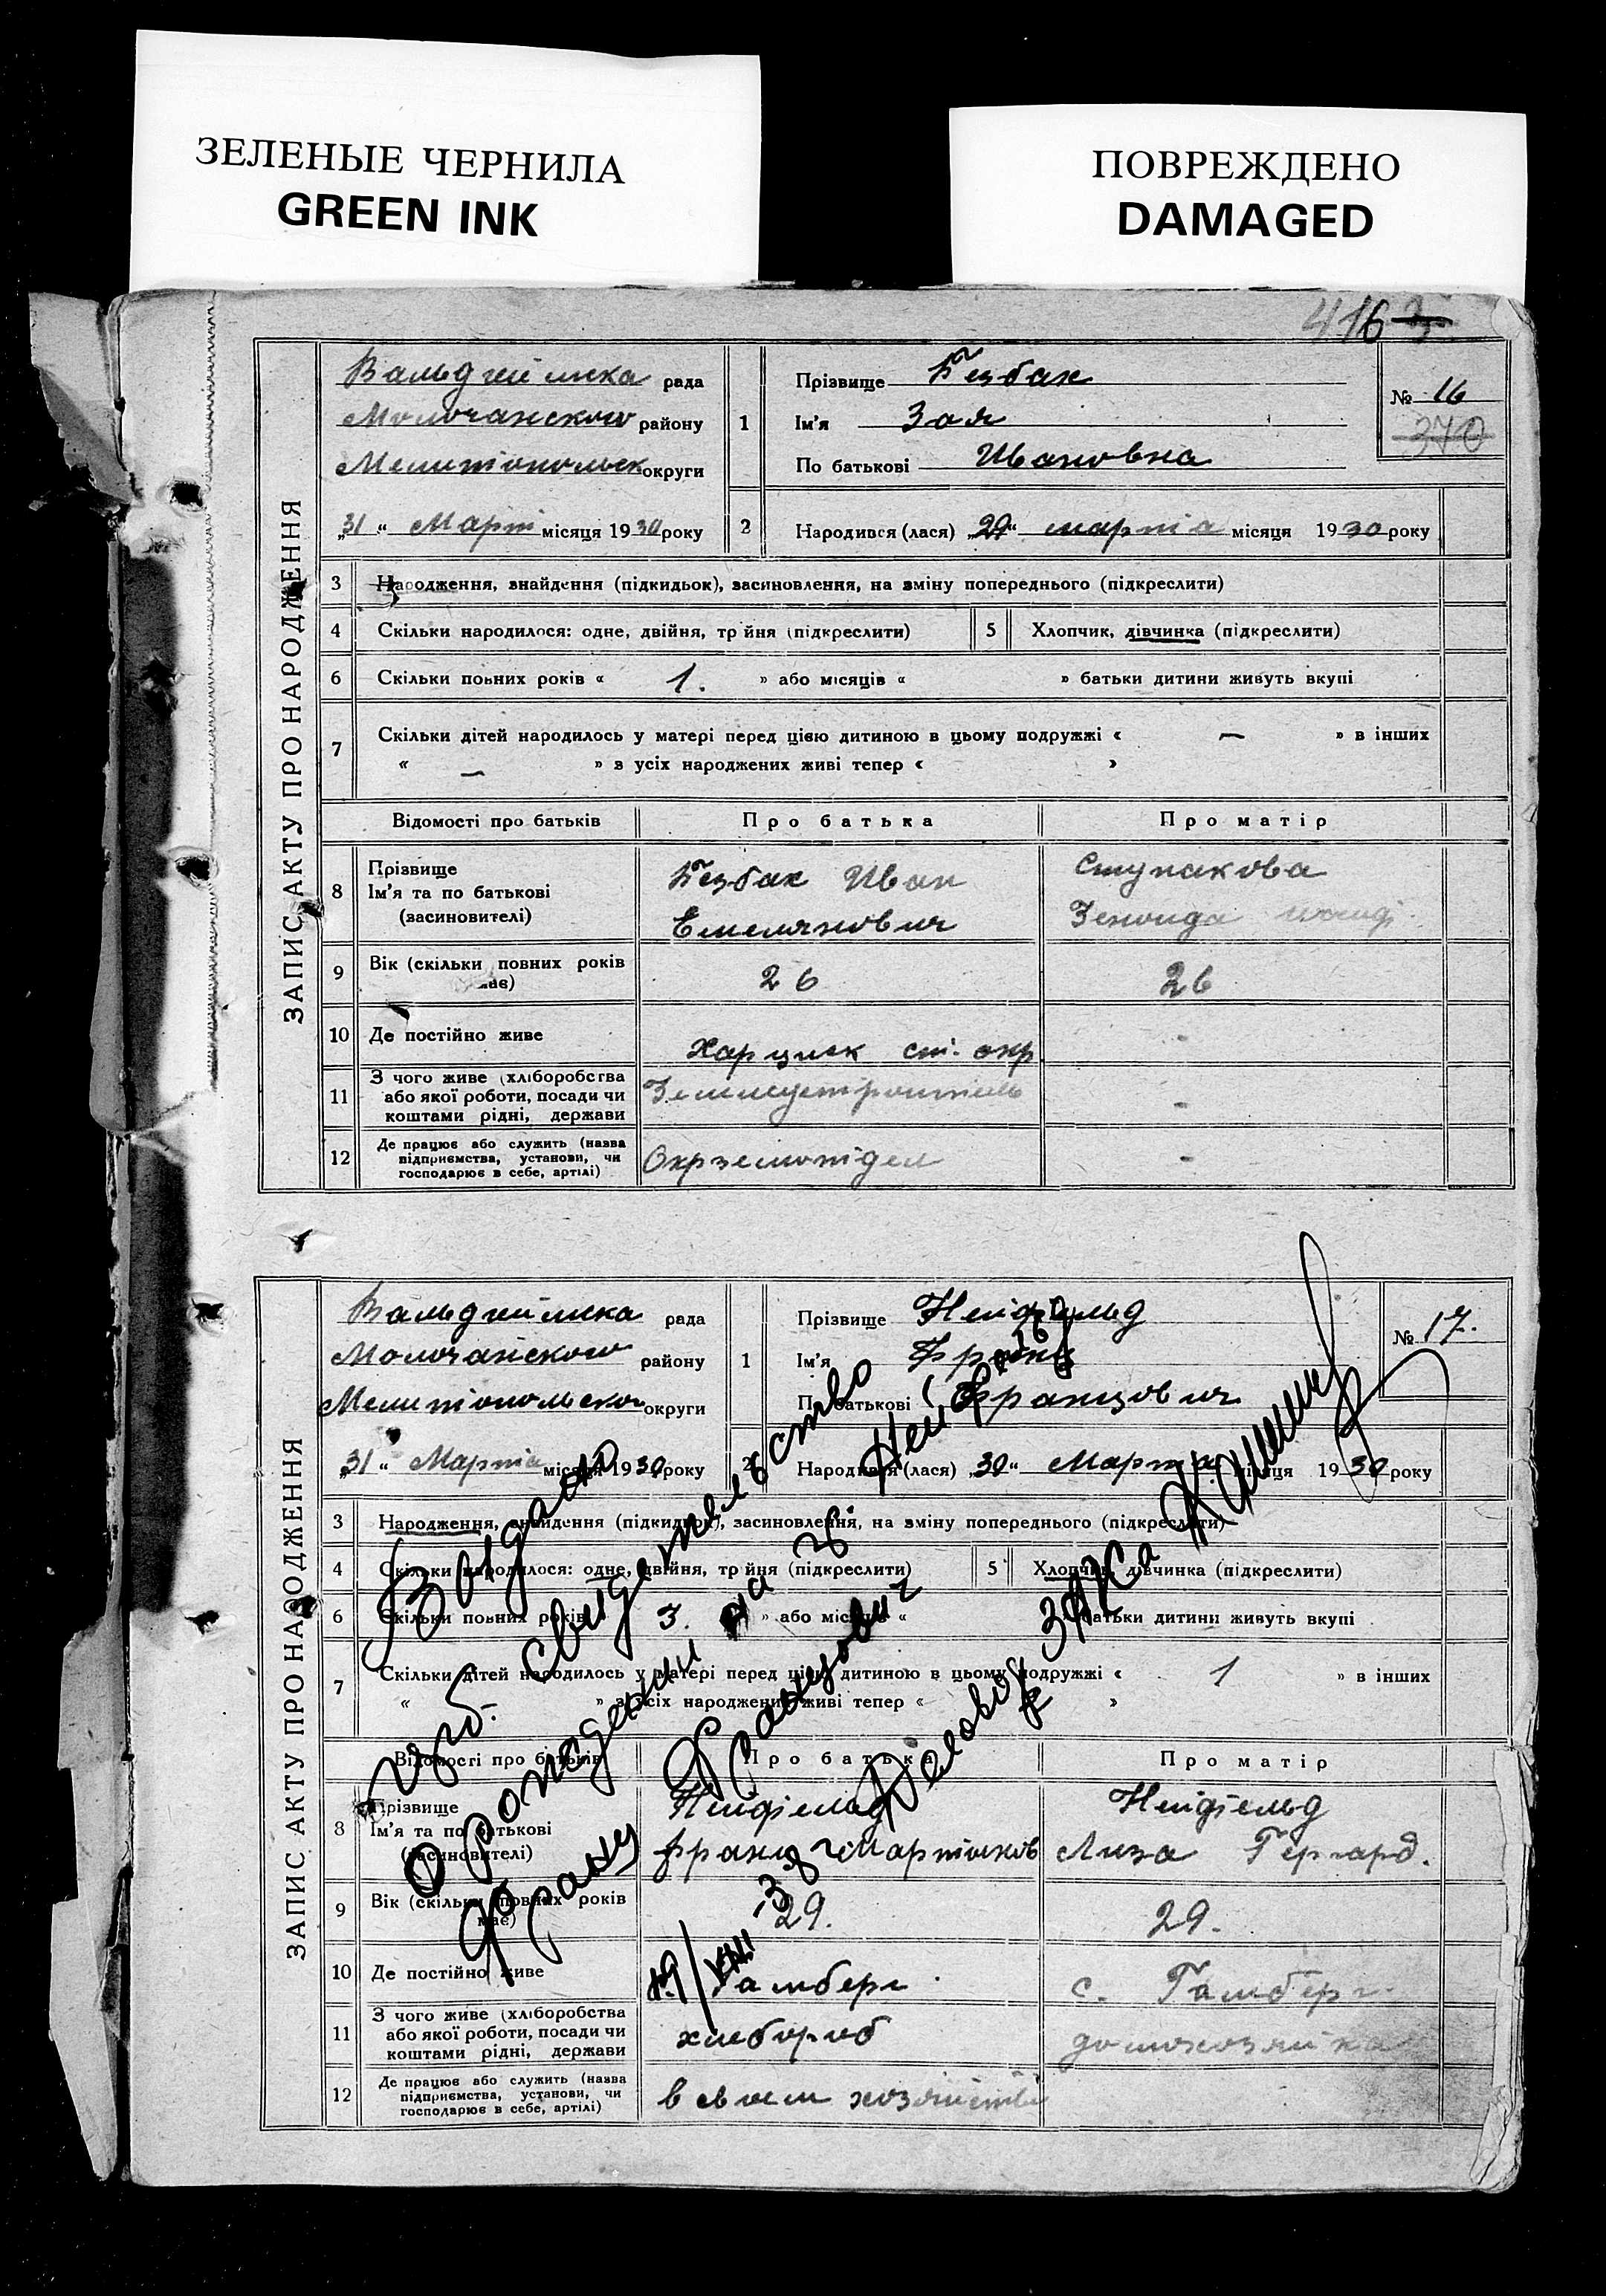 ЗЕЛЕНЫЕ ЧЕРНИЛА
GREEN INK
ПОВРЕЖДЕНО
DAMAGED
416
ЗАПИС АКТУ ПРО НАРОДЖЕННЯ
Вальдгеймска рада
Молочанского району
Мелитопольск округи
„31“ Март місяця 1930 року
1
Прізвище Безбах
Ім'я Зоя
По батькові Ивановна
№ 16
370
2 Народився (лася) „29“ марта місяця 1930 року
3 Народження, знайдення (підкидьок), засиновлення, на зміну попереднього (підкреслити)
4 Скільки народилося: одне, двійня, трійня (підкреслити) 5 Хлопчик, дівчинка (підкреслити)
6 Скільки повних років « 1. » або місяців « » батьки дитини живуть вкупі
7 Скільки дітей народилось у матері перед цією дитиною в цьому подружжі « — » в інших
« — » з усіх народжених живі тепер « »
Відомості про батьків Про батька Про матір
8 Прізвище
Ім'я та по батькові
(засиновителі)
Безбах Иван
Емелянович
Ступакова
Зеноида
9 Вік (скільки повних років має) 26 26
10 Де постійно живе Харцизк ст. окр -
11 З чого живе (хліборобства
або якої роботи, посади чи
коштами рідні, держави
Землеустроитель -
12 Де працює або служить (назва
підприємства, установи, чи
господарює в себе, артілі)
Окрземотідел -
ЗАПИС АКТУ ПРО НАРОДЖЕННЯ
Вальдгеймска рада
Молочанского району
Мелитопольско округи
„31“ Марта місяця 1930 року
1
Прізвище Нейфельд
Ім'я Франц
По батькові Францович
№ 17.
2 Народився (лася) „30“ Марта місяця 1930 року
3 Народження, знайдення (підкидьок), засиновлення, на зміну попереднього (підкреслити)
4 Скільки народилося: одне, двійня, трійня (підкреслити) 5 Хлопчик, дівчинка (підкреслити)
6 Скільки повних років 3. » або місяців « » батьки дитини живуть вкупі
7 Скільки дітей народилось у матері перед цією дитиною в цьому подружжі « 1 » в інших
« » з усіх народжених живі тепер « »
Відомості про батьків Про батька Про матір
8 Прізвище
Ім'я та по батькові
(засиновителі)
Нейфіельд
Франц Мартынов
Нейфіельд
Лиза Гергард.
9 Вік (скільки повних років має) 29. 29.
10 Де постійно живе Гамберг с. Гамберг
11 З чого живе (хліборобства
або якої роботи, посади чи
коштами рідні, держави
хлебороб
домохозяйка
12 Де працює або служить (назва
підприємства, установи, чи
господарює в себе, артілі)
в своем хозяйстві
Выдано
свидетельство
о рождении на
Нейфельд
Франц Францович
Деловод ЗАГСа